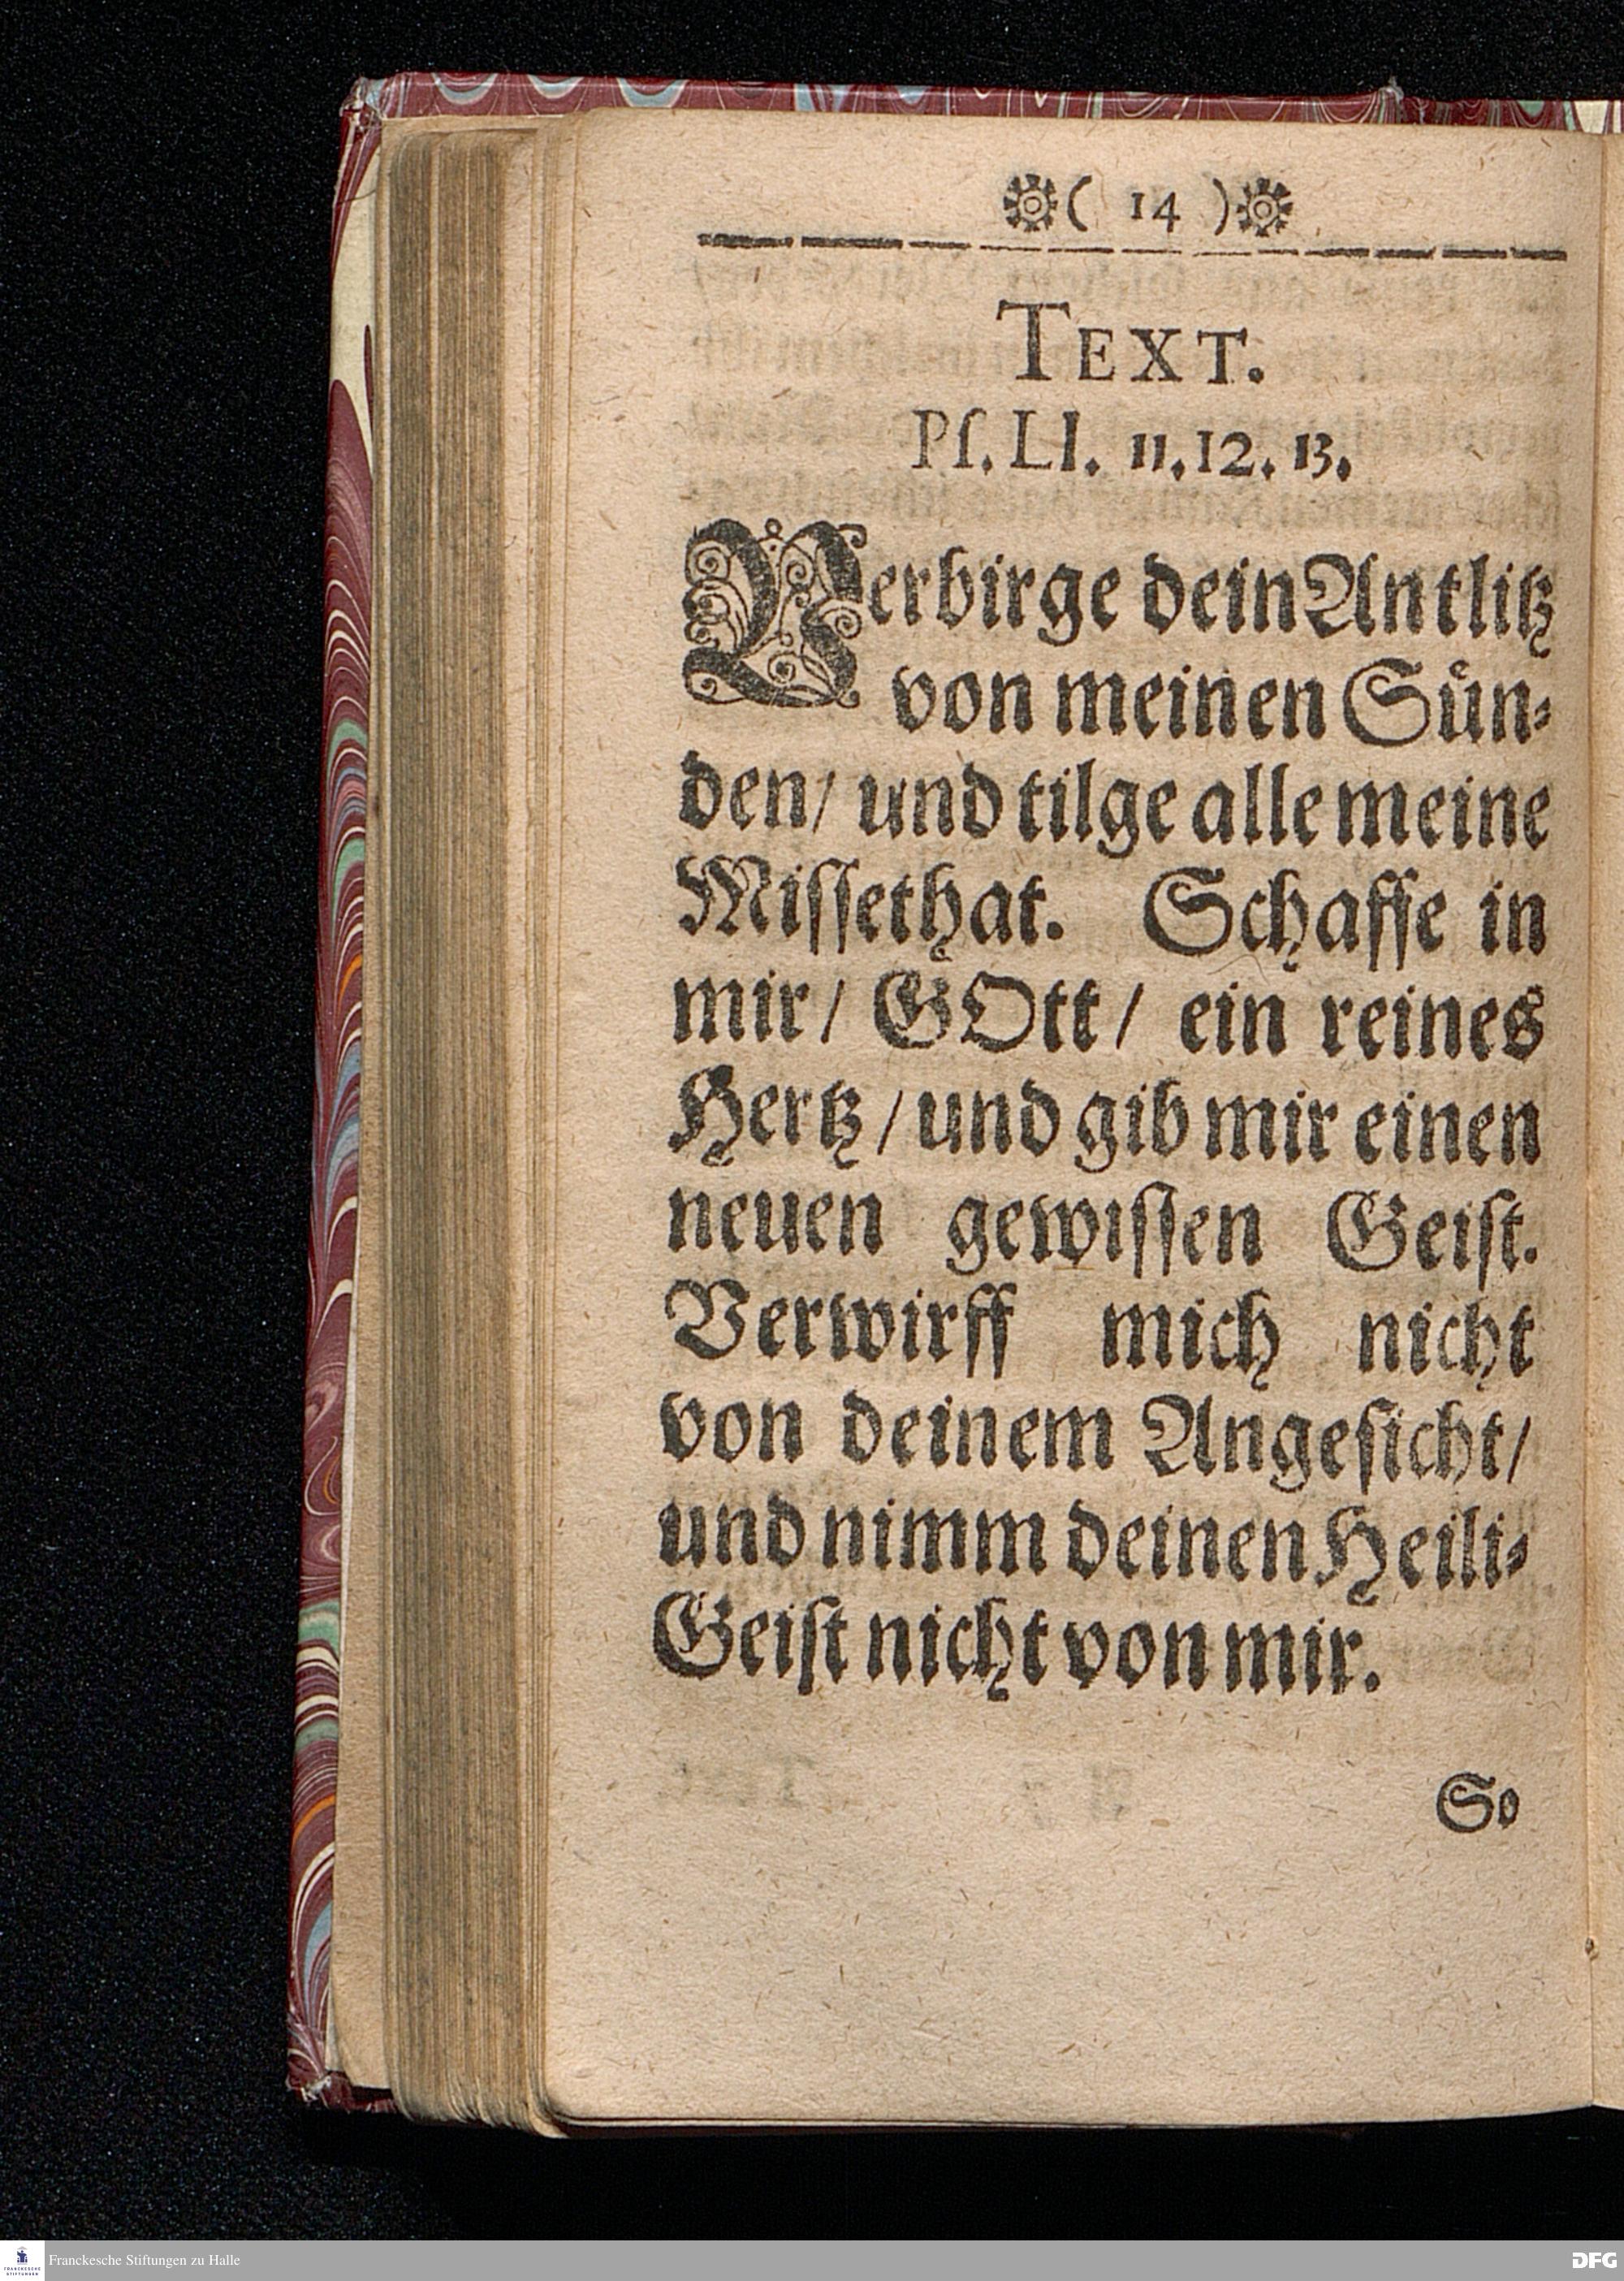 ( 14 )
TEXT.
Pſ. LI. 11. 12. 13.
Verbirge dein Antlitz
von meinen Suͤn⸗
den/ und tilge alle meine
Miſſethat. Schaffe in
mir/ GOtt/ ein reines
Hertz/ und gib mir einen
neuen gewiſſen Geiſt.
Verwirff mich nicht
von deinem Angeſicht/
und nimm deinen Heili⸗
Geiſt nicht von mir.
So
FRANCKESCHE STIFTUNGEN
Franckesche Stiftungen zu Halle
DFG